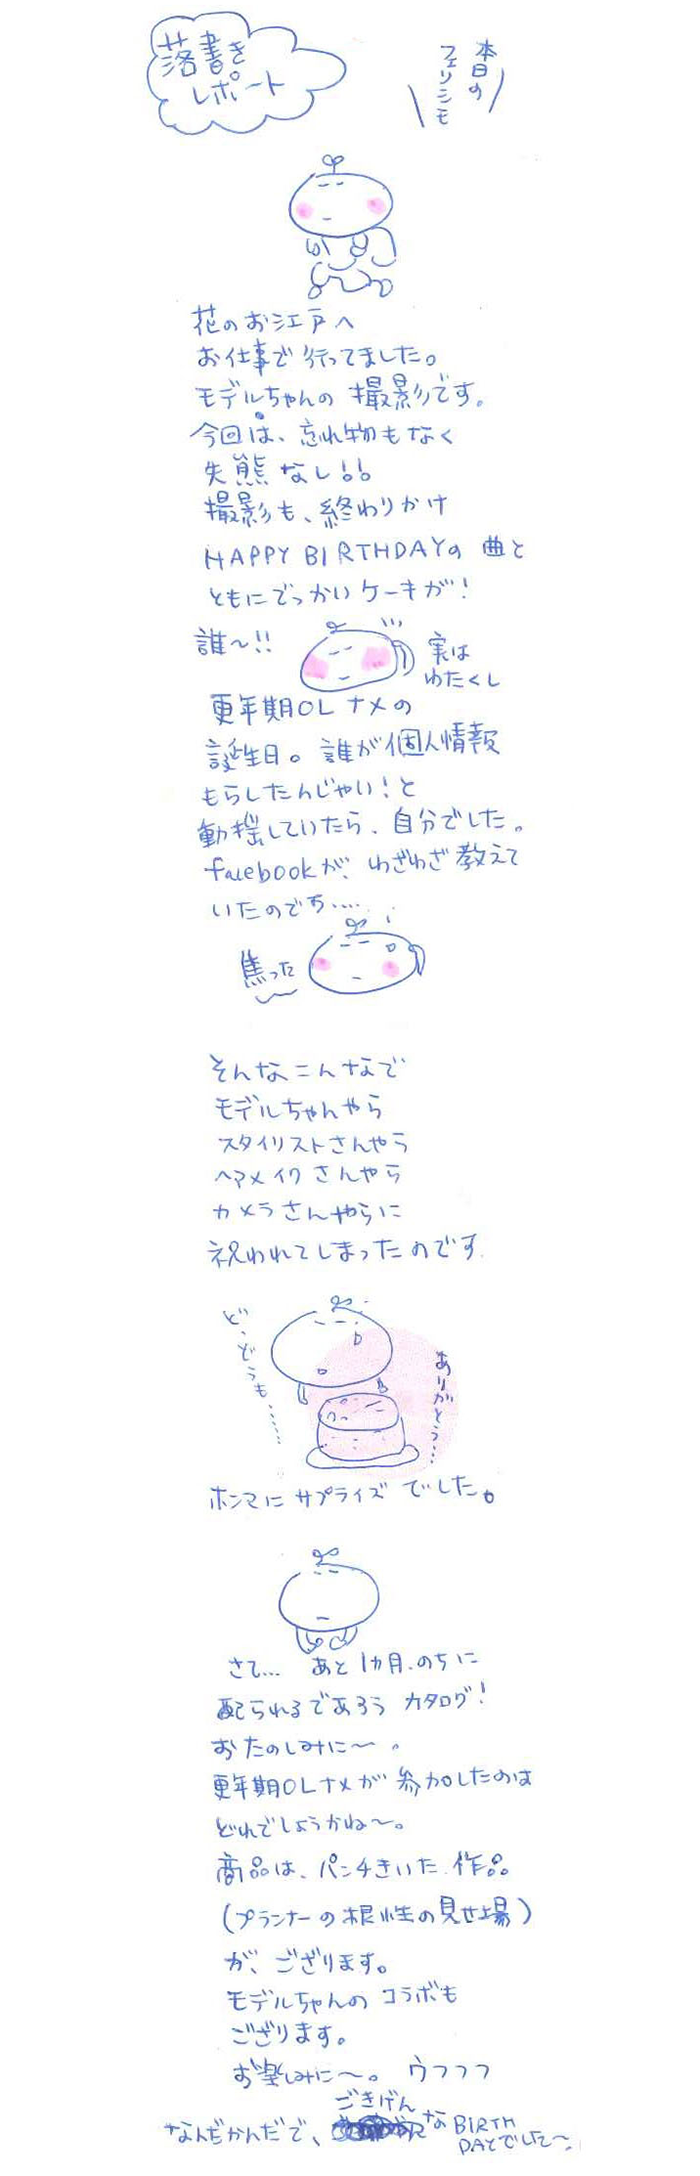 落書き
レポート
本日の
フェリシモ
花のお江戸へ
お仕事で行ってました。
モデルちゃんの撮影です。
今回は、忘れ物もなく
失熊なし!!
撮影も、終わりかけ
HAPPY BIRTHDAYの曲と
ともにでっかいケーキが!
誰〜!!
実は
わたくし
更年期OLナメの
誕生日。誰が個人情報
もらしたんじゃい!と
動揺していたら、自分でした。
facebookが、わざわざ教えて
いたのです....
焦った
そんなこんなで
モデルちゃんやら
スタイリストさんやら
ヘアメイクさんやら
カメラさんやらに
祝われてしまったのです.
ど、どうも......
ありがとう...
ホンマにサプライズでした。
さて... あと1カ月.のちに
配られるであろう カタログ!
おたのしみに〜。
更年期OLナメが参加したのは
どれでしょうかね〜。
商品は、パンチきいた作品
(プランナーの根性の見せ場)
が、ござります。
モデルちゃんのコラボも
ござります。
お楽しみに〜。 ウフフフ
なんだかんだで、ごきげんなBIRTH
DAYでした〜。